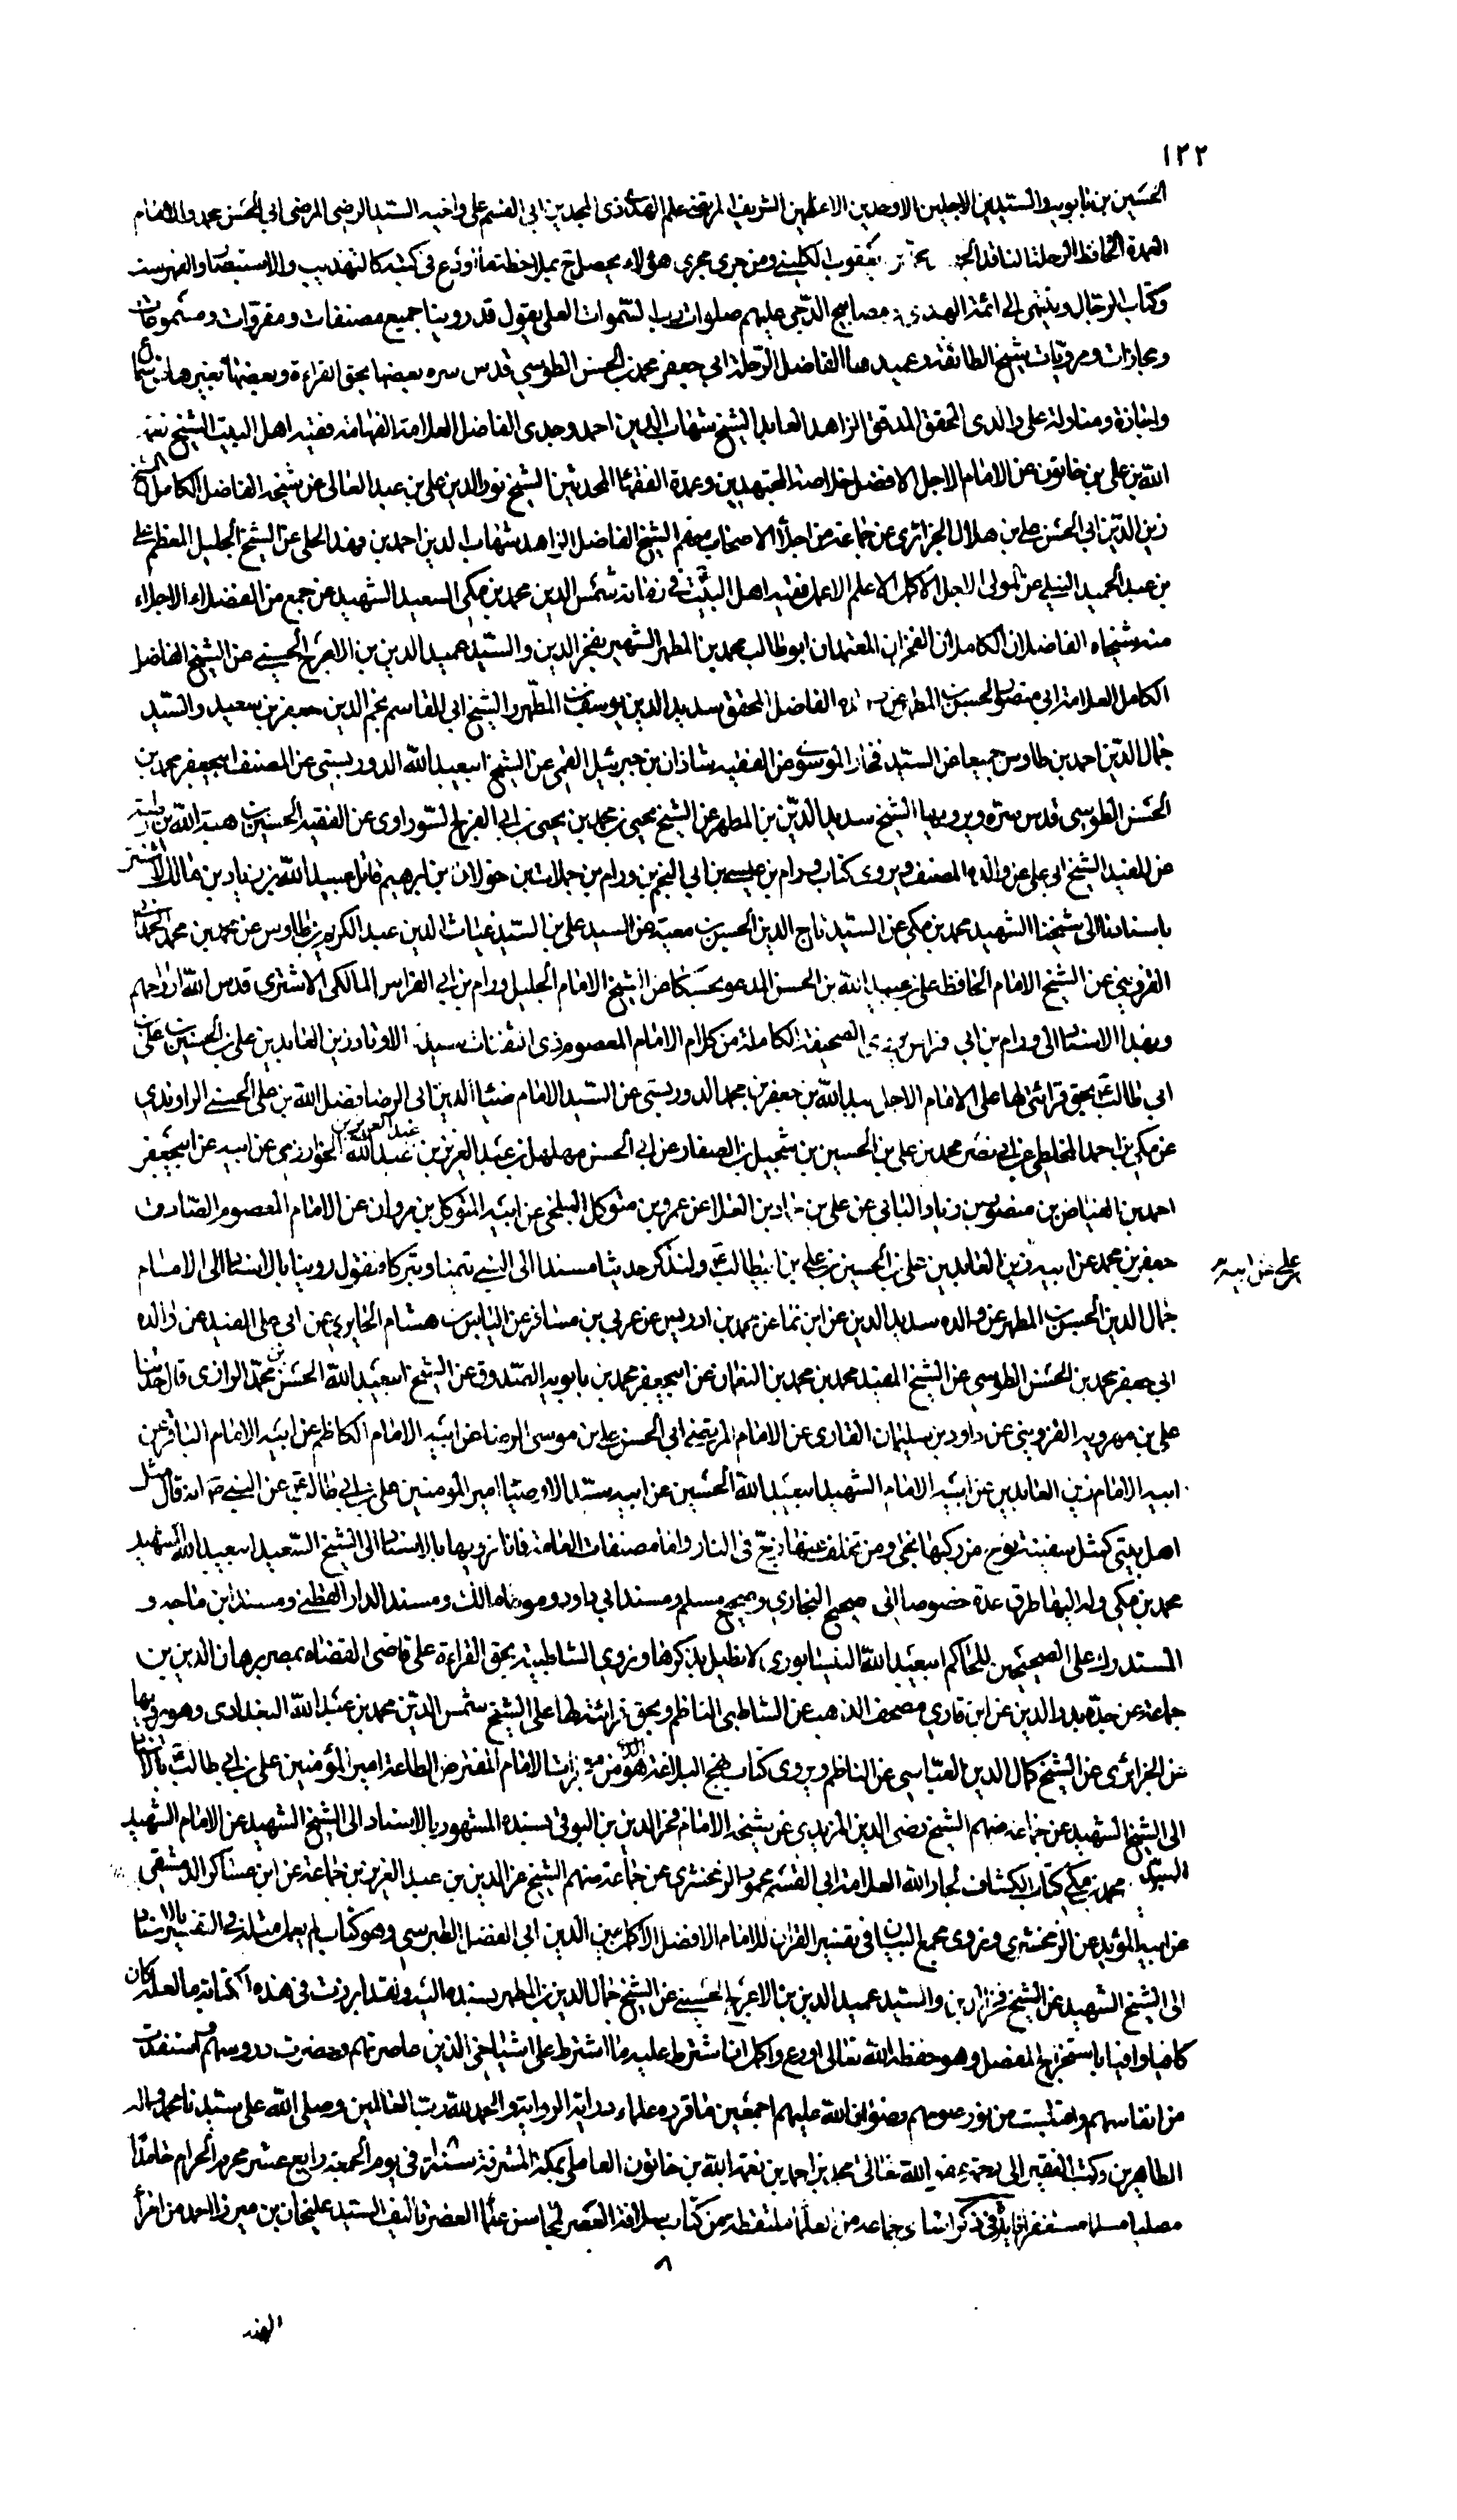 ١٢٢
الحسين بن بابويه والسيدين الاجلين الاوحدين الاعلمين الشريف المرتضى علم الهدى ذى المجدين ابى القسم على واخيه السيد الرضى المرضى ابى الحسن محمد والامام
العمدة الحافظ الرحلة الناقد يعقوب الكلينى ومن جرى مجرى هؤلاء يحصل بملاحظة ما اودع فى كتبه كالتهذيب والاستبصار والفهرست
وكتاب الرجال وينتهى الى ائمة الهدى مصابيح الدجى عليهم صلوات رب السموات العلى يقول قد روينا جميع مصنفات ومقروات ومسموعات
ومجازات ومرويات شيخ الطائفة وعميدها الفاضل الرحلة ابى جعفر محمد بن الحسن الطوسى قدس سره بعضها بحق القراءة وبعضها بغيرها سماعا
واجازة ومناولة على والدى المحقق المدقق الزاهد العابد الشيخ شهاب الدين احمد وجدى الفاضل العلامة الفهامة فقيه اهل البيت الشيخ نعمة
الله بن على بن خاتون عن الامام الاجل الافضل خلاصة المجتهدين وعمدة الفقهاء المحدثين الشيخ نور الدين على بن عبد العالى عن شيخه الفاضل الكامل الشيخ
زين الدين ابى الحسن على بن هلال الجزائرى عن جماعة من اجلاء الاصحاب منهم الشيخ الفاضل الزاهد شهاب الدين احمد بن فهد الحلى عن الشيخ الجليل المعظم على
بن عبد الحميد النيلى عن المولى الاجل الاكمل الاعلم الاعمل فقيه اهل البيت فى زمانه شمس الدين محمد بن مكى السعيد الشهيد عن جمع من الفضلاء الاجلاء
منهم شيخاه الفاضلان الكاملان الفخران المعتمدان ابو طالب محمد بن المطهر الشهير بفخر الدين والسيد عميد الدين بن الاعرج الحسينى عن الشيخ الفاضل
الكامل العلامة ابى منصور الحسن بن المطهر عن الفاضل المحقق سديد الدين يوسف بن المطهر والشيخ ابى القاسم نجم الدين جعفر بن سعيد والسيد
جمال الدين احمد بن طاوس جميعا عن السيد فخار الموسوى عن الفقيه شاذان بن جبرئيل القمى عن الشيخ ابى عبد الله الدوريستى عن المصنف ابى جعفر محمد بن
الحسن الطوسى قدس سره ويرويها الشيخ سديد الدين بن المطهر عن الشيخ يحيى بن محمد بن يحيى بن ابى الفرج السوراوى عن الفقيه الحسين بن هبة الله بن رطبة
عن المفيد الشيخ ابى على عن والده المصنف ويروى كتاب ورام بن عيسى بن ابى النجم بن ورام بن حملات بن خولان بن ابرهيم قاتل عبيد الله بن زياد بن مالك الاشتر
باسنادنا الى شيخنا الشهيد محمد بن مكى عن السيد تاج الدين الحسين بن معية عن السيد على بن السيد غياث الدين عبد الكريم بن طاوس عن محمد بن محمد الحمدانى
القزوينى عن الشيخ الامام الحافظ على بن عبيد الله بن الحسن المدعو بحسكا عن الشيخ الامام الجليل ورام بن ابى الفراس المالكى الاشترى قدس الله ارواحهم
وبهذا الاسناد الى ورام بن ابى فراس نروى الصحيفة الكاملة من كلام الامام المعصوم ذى الثفنات سيد الاوتاد زين العابدين على بن الحسين بن على بن
ابى طالب ع بحق قرائتى لها على الامام الاجل عبد الله بن جعفر بن محمد الدوريستى عن السيد الامام ضياء الدين ابى الرضا فضل الله بن على الحسنى الراوندى
عن مكى بن احمد المخلطى عن ابى نصر محمد بن على بن الحسين بن شجيل بن الصفار عن ابى الحسن مهلهل بن عبد العزيز بن عبد الله الخوارزمى عن ابيه عن ابى جعفر
عبد العزيز بن
احمد بن الفياض بن منصور بن زياد النبانى عن على بن حماد بن العلا عن عمرو بن متوكل البلخى عن ابيه المتوكل بن مروان عن الامام المعصوم الصادق
جعفر بن محمد عن ابيه زين العابدين على بن الحسين بن على بن ابيطالب ع ولنذكر حديثا مسندا الى النبى تيمنا وتبركا فنقول روينا بالاسناد الى الامام
على عن ابيه
جمال الدين الحسن بن المطهر عن والده سديد الدين عن ابن نما عن محمد بن ادريس عن عربى بن مسافر عن الياس بن هشام الحايرى عن ابى على المفيد عن والده
ابى جعفر محمد بن الحسن الطوسى عن الشيخ المفيد محمد بن محمد بن النعمان عن ابى جعفر محمد بن بابويه الصدوق عن الشيخ ابى عبد الله الحسن بن محمد الرازى قال حدثنا
على بن مهرويه القزوينى عن داود بن سليمان الغازى عن الامام المرتضى ابى الحسن على بن موسى الرضا عن ابيه الامام الكاظم عن ابيه الامام الباقر عن
ابيه الامام زين العابدين عن ابيه الامام الشهيد ابى عبد الله الحسين عن ابيه سيد الاوصياء امير المومنين على بن ابى طالب ع عن النبى ص انه قال مثل
اهل بيتى كمثل سفينة نوح من ركبها نجى ومن تخلف عنها زج فى النار واما مصنفات العامة فانا نرويها بالاسناد الى الشيخ السعيد ابى عبد الله الشهيد
محمد بن مكى وله اليها طرق عدة خصوصا الى صحيح البخارى وصحيح مسلم ومسند ابى داود وموطاء مالك ومسند الدار القطنى ومسند ابن ماجه و
المستدرك على الصحيحين للحاكم ابى عبد الله النيسابورى لا نطيل بذكرها ونروى الشاطبية بحق القراءة على قاضى القضاة بمصر برهان الدين بن
جماعة عن جده بدر الدين عن ابن قارى مصحف الذهب عن الشاطبى الناظم وبحق قرائته لها على الشيخ شمس الدين محمد بن عبد الله البغدادى وهو يرويها
عن الجزائرى عن الشيخ كمال الدين العباسى عن الناظم ويروى كتاب نهج البلاغة الذى هو من الامام المفترض الطاعة امير المؤمنين على بن ابى طالب ع بالاسناد
الى الشيخ الشهيد عن جماعة منهم الشيخ رضى الدين المزيدى عن شيخه الامام فخر الدين بن البوقى بسنده المشهور بالاسناد الى الشيخ الشهيد عن الامام الشهيد
محمد بن مكى كتاب الكشاف لجار الله العلامة ابى القسم محمود الزمخشرى عن جماعة منهم الشيخ عز الدين بن عبد العزيز بن جماعة عن ابن عساكر الدمشقى
عن ابيه المؤيد عن الزمخشرى ونروى مجمع البيان فى تفسير القران للامام الافضل الاكمل امين الدين ابى الفضل الطبرسى وهو كتاب لم يعمل مثله فى التفسير بالاسناد
الى الشيخ الشهيد عن الشيخ فخر الدين والسيد عميد الدين بن الاعرج الحسينى عن الشيخ جمال الدين بن المطهر بسنده اليه ولقد ابرزت فى هذه الكتابة ما لعله كان
كافيا وافيا باستخراج المفصل وهو حفظه الله تعالى اورع واكمل ان اشترط عليه ما اشترط على اشياخى الذين عاصرتهم وحضرت دروسهم واستفدت
من انفاسهم واقتبست من نور علومهم رضوان الله عليهم اجمعين ما قرره علماء دراية الرواية والحمد لله رب العالمين وصلى الله على سيدنا محمد واله
الطاهرين وكتب الفقير الى رحمة الله تعالى محمد بن احمد بن نعمة الله بن خاتون العاملى بمكة المشرفة فى يوم الجمعة رابع عشر محرم الحرام حامدا
مصليا مسلما مستغفرا فى ذكر جماعة من العلماء ملتقطة من كتاب سلافة العصر لمحاسن علماء العصر تاليف السيد عليخان بن ميرزا احمد من امراء
٨
الهند